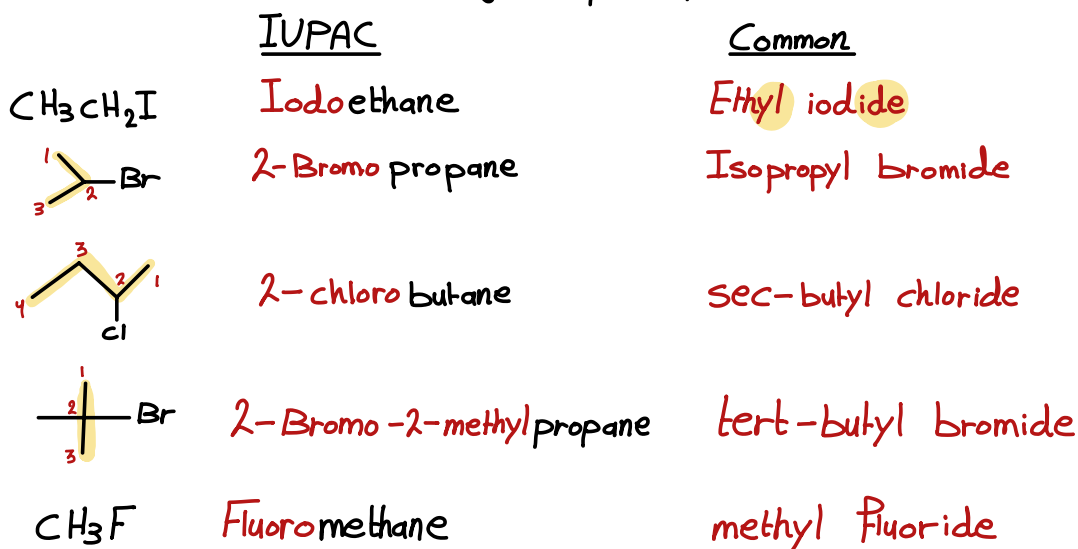 IUPAC Common
CH3CH2I Iodoethane Ethyl iodide
1
Br 2-Bromopropane Isopropyl bromide
2
3
3
2 1
4 2-chlorobutane sec-butyl chloride
Cl
1
2 Br 2-Bromo-2-methylpropane tert-butyl bromide
3
CH3F Fluoromethane methyl fluoride